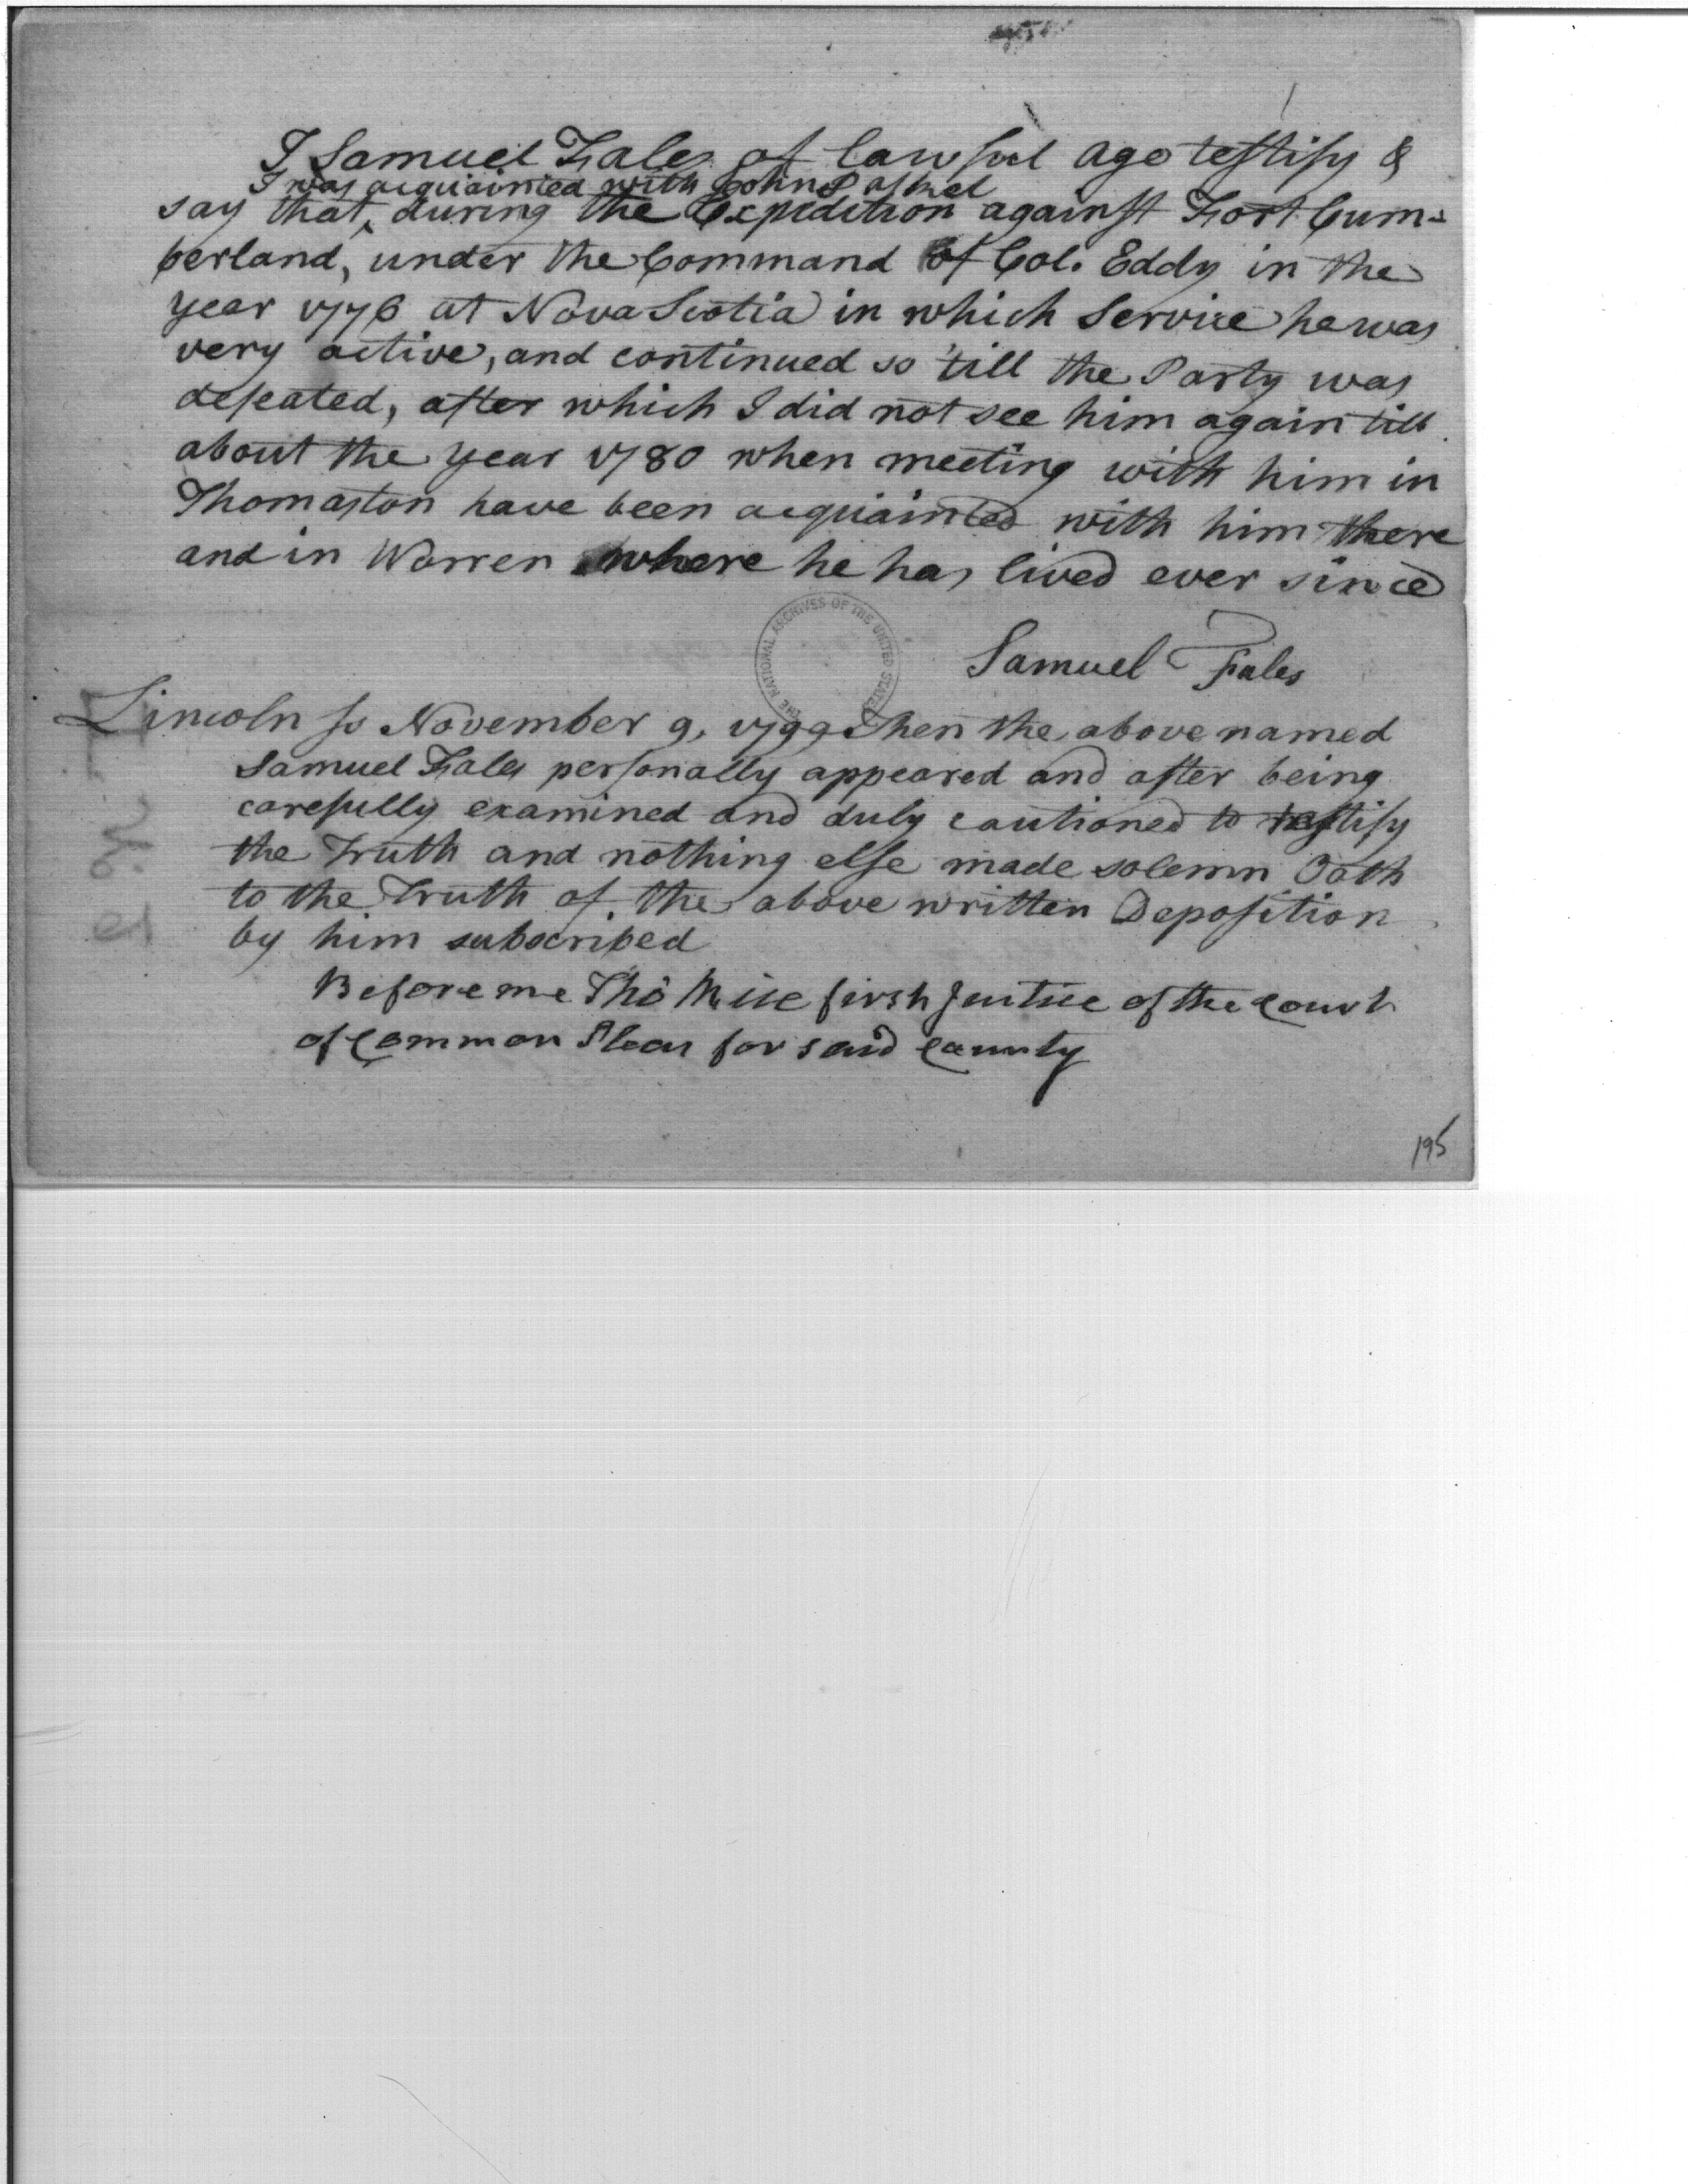 I Samuel Fales of lawful age testify &
I was acquainted with John Paskel
say that, during the Expedition against Fort Cum=
berland, under the Command of Col. Eddy in the
year 1776 at Nova Scotia in which Service he was
very active, and continued so 'till the Party was
defeated, after which I did not see him again till
about the year 1780 when meeting with him in
Thomaston have been acquainted with him there
and in Warren where he has lived ever since
Samuel Fales
THE NATIONAL ARCHIVES OF THE UNITED STATES
Lincoln ss November 9, 1799 Then the above named
Samuel Fales personally appeared and after being
carefully examined and duly cautioned to testify
the Truth and nothing else made solemn Oath
to the Truth of the above written Deposition
by him subscribed
Before me Tho Rice first Justice of the Court
of Common Pleas for said County
195